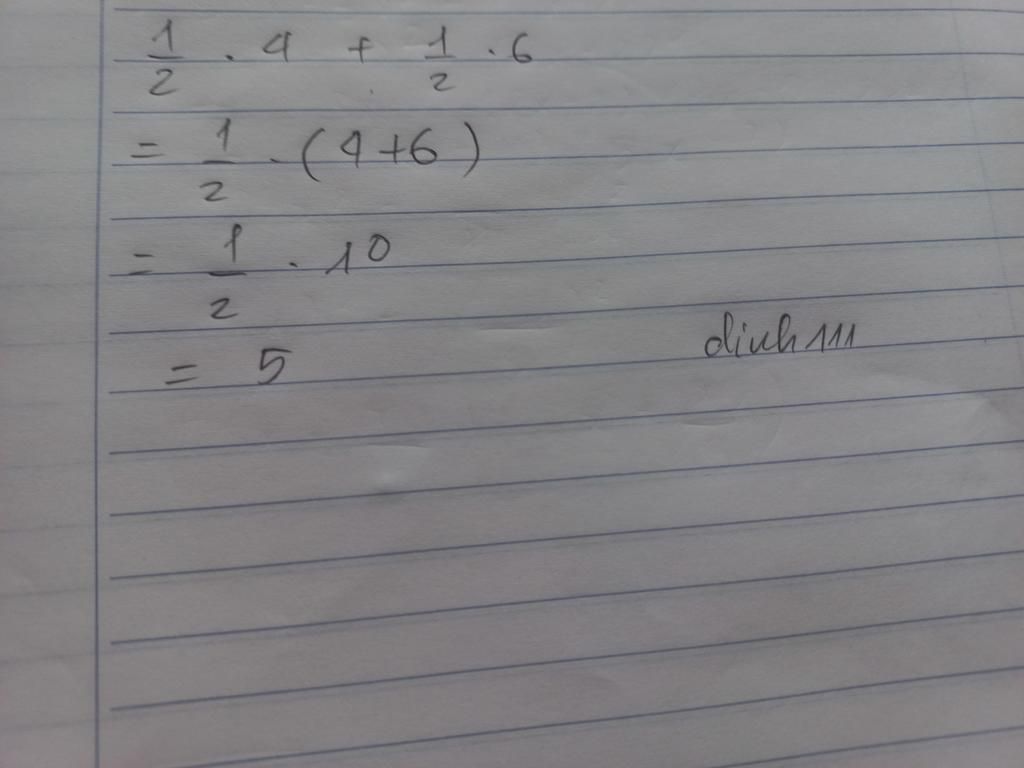 1/2 . 4 + 1/2 . 6
= 1/2 . (4+6)
= 1/2 . 10
dinh111
= 5